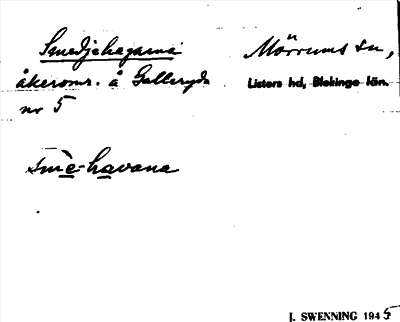 Smedjehagarna
Mörrums sn,
åkeromr. å Galleryda
Listers hd, Blekinge län.
nr 5
smè-havana
J. SWENNING 1945